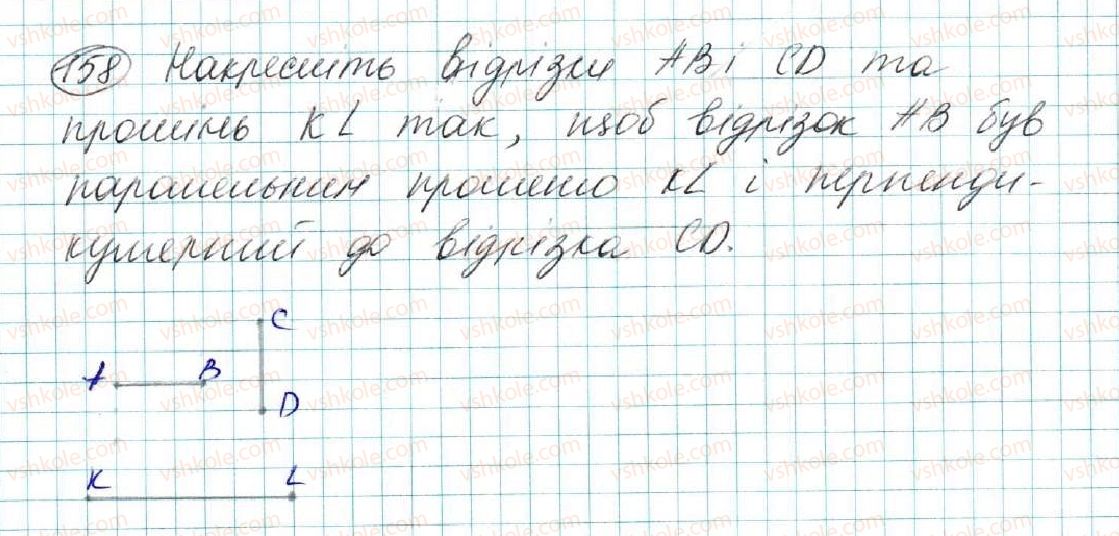 158 Накресліть відрізки AB і CD та
промінь KL так, щоб відрізок AB був
паралельним променю KL і перпенди-
кулярний до відрізка CD.
C
A B
D
K L
vshkole.com